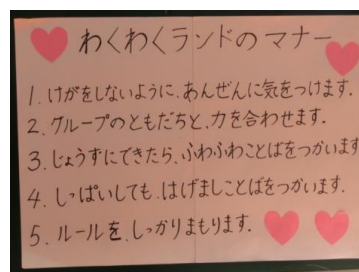 わくわくランドのマナー
1. けがをしないように、あんぜんに気をつけます.
2. グループのともだちと、力を合わせます.
3. じょうずにできたら、ふわふわことばをつかいます
4. しっぱいしても、はげましことばをつかいます.
5. ルールを、しっかりまもります.